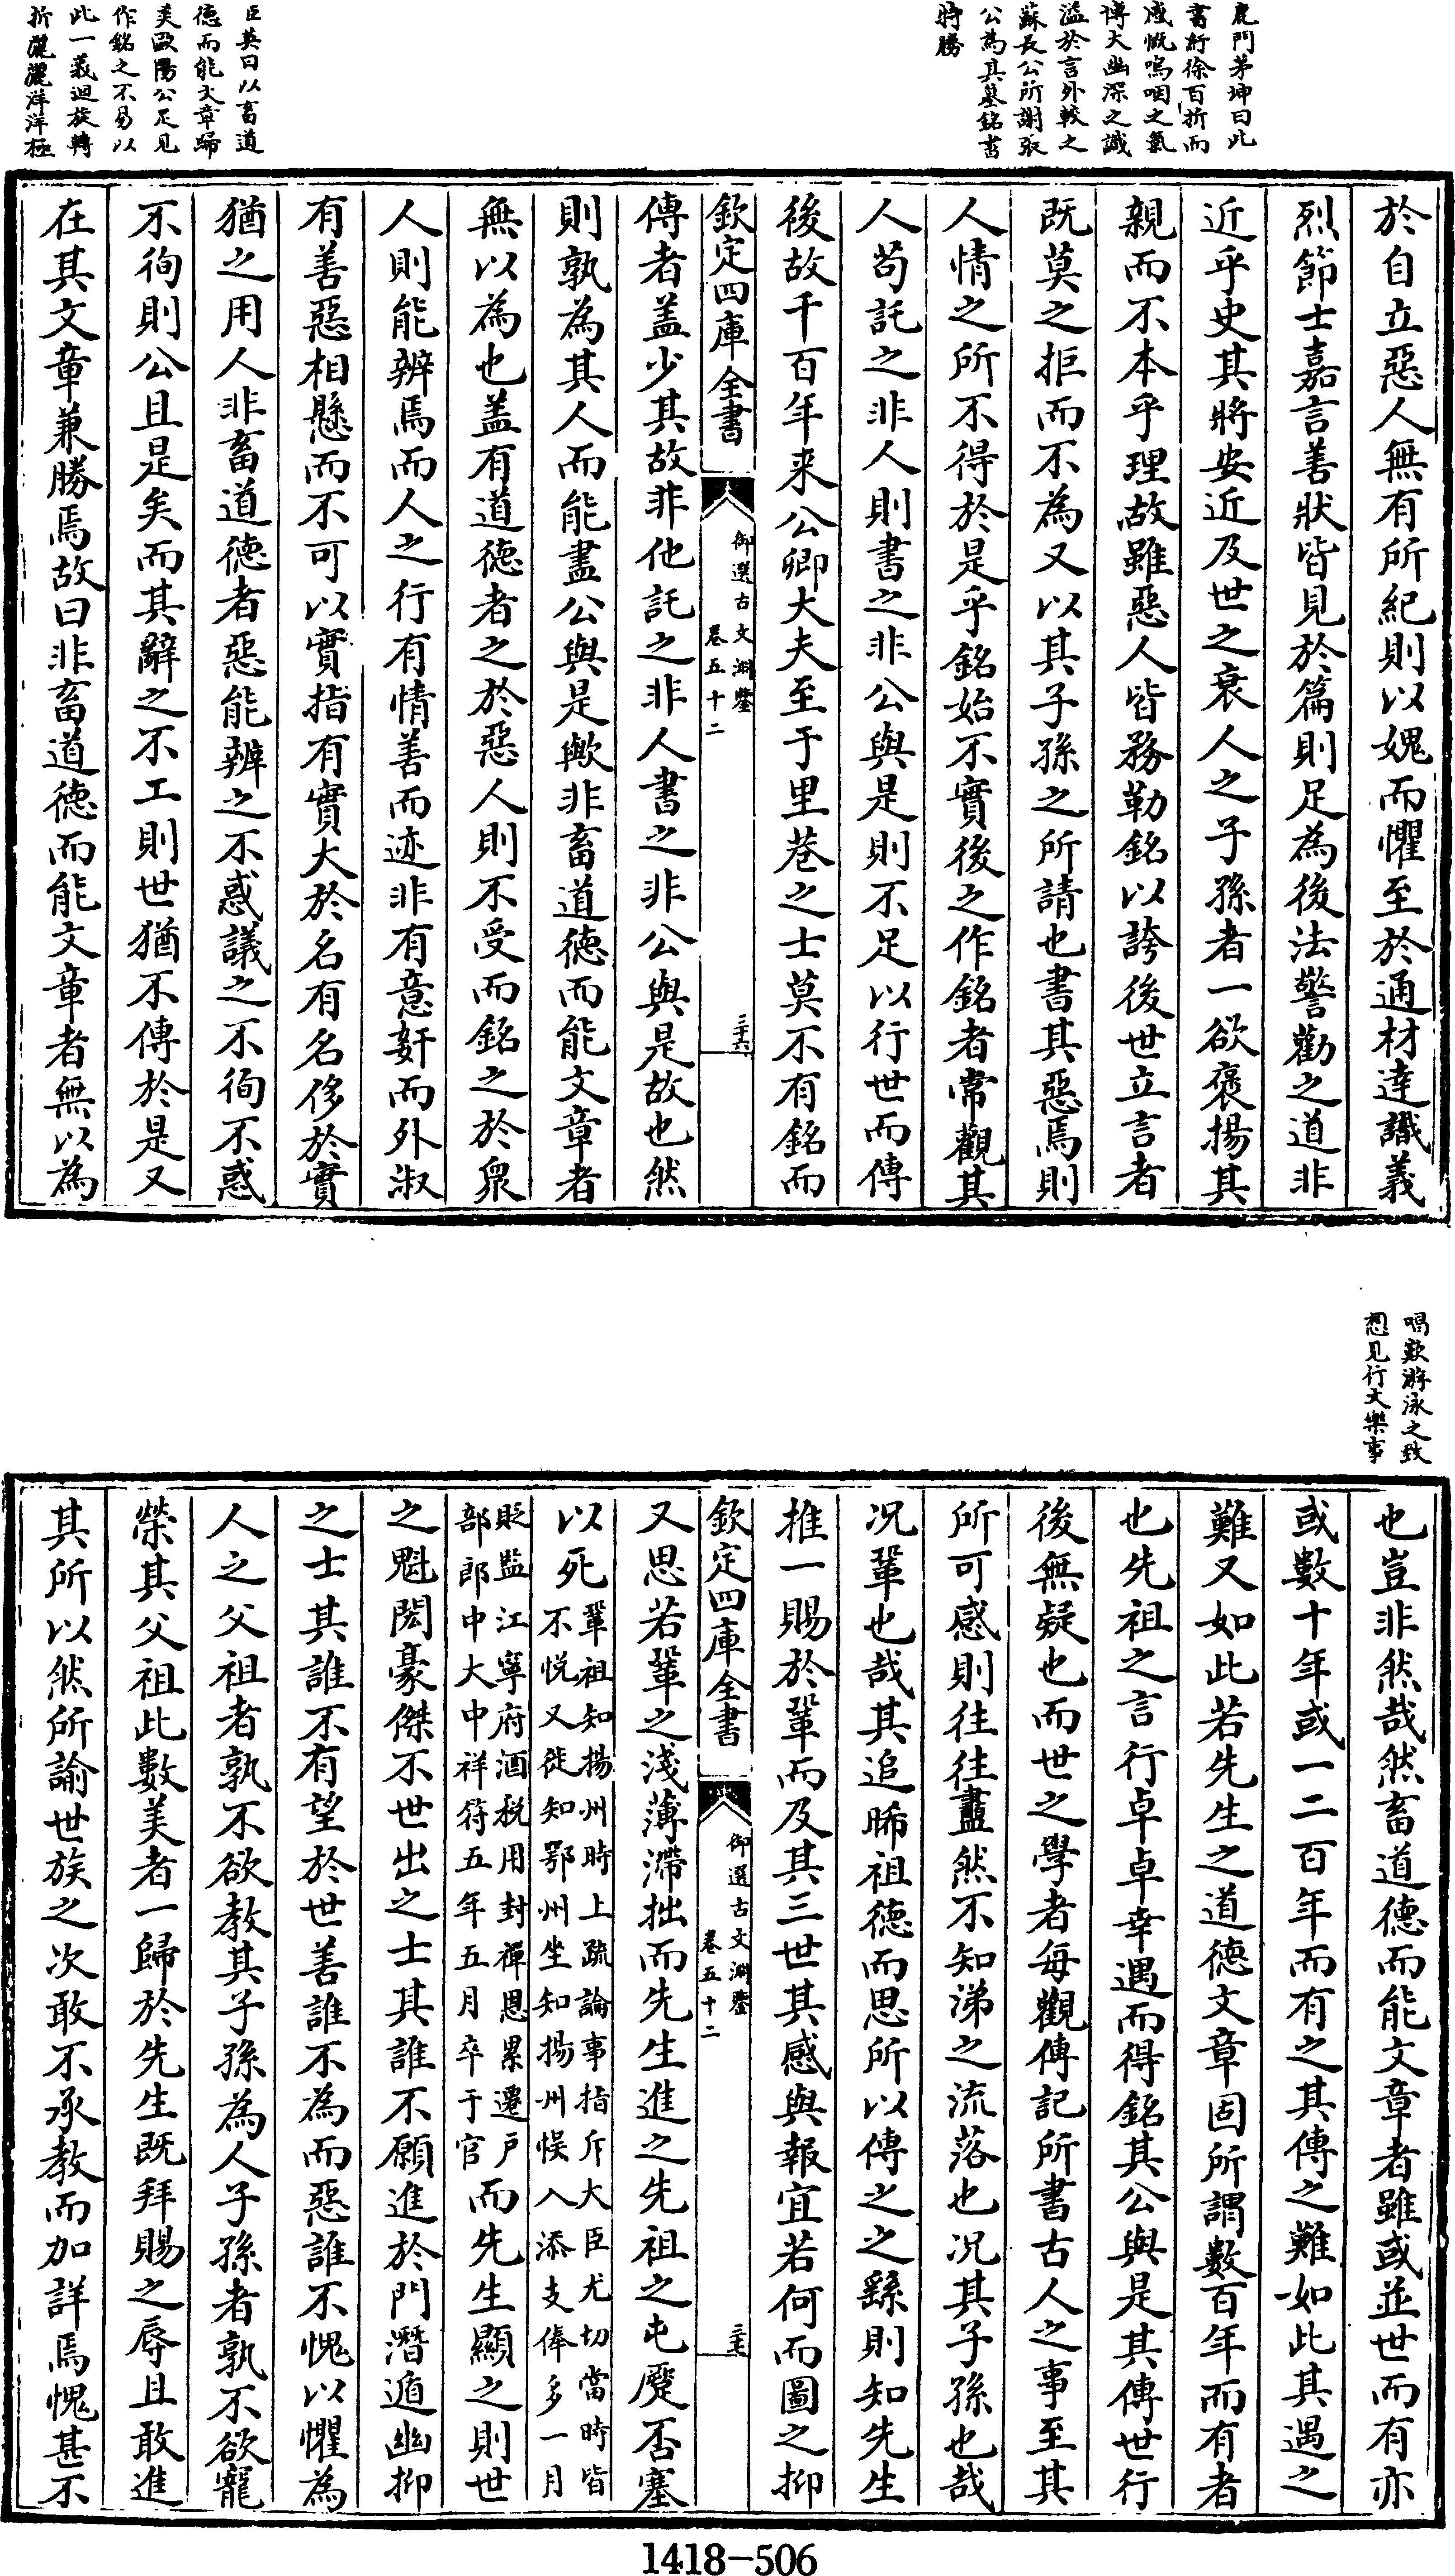 鹿門茅坤曰此
書紆徐百折而
感慨嗚咽之氣
博大幽深之識
溢於言外較之
蘇長公所謝張
公為其墓銘書
特勝
臣英曰以畜道
德而能文章歸
美歐陽公足見
作銘之不易以
此一義迴旋轉
折灑灑洋洋極
於自立惡人無有所紀則以媿而懼至於通材達識義
烈節士嘉言善狀皆見於篇則足為後法警勸之道非
近乎史其將安近及世之衰人之子孫者一欲褒揚其
親而不本乎理故雖惡人皆務勒銘以誇後世立言者
既莫之拒而不為又以其子孫之所請也書其惡焉則
人情之所不得於是乎銘始不實後之作銘者常觀其
人茍託之非人則書之非公與是則不足以行世而傳
後故千百年来公卿大夫至于里巷之士莫不有銘而
欽定四庫全書
御選古文淵鑒
卷五十二
三十六
傳者盖少其故非他託之非人書之非公與是故也然
則孰為其人而能盡公與是歟非畜道德而能文章者
無以為也盖有道德者之於惡人則不受而銘之於衆
人則能辨焉而人之行有情善而迹非有意奸而外淑
有善惡相懸而不可以實指有實大於名有名侈於實
猶之用人非畜道德者惡能辨之不惑議之不徇不惑
不徇則公且是矣而其辭之不工則世猶不傳於是又
在其文章兼勝焉故曰非畜道德而能文章者無以為
唱歎游泳之致
想見行文樂事
也豈非然哉然畜道德而能文章者雖或並世而有亦
或數十年或一二百年而有之其傳之難如此其遇之
難又如此若先生之道德文章固所謂數百年而有者
也先祖之言行卓卓幸遇而得銘其公與是其傳世行
後無疑也而世之學者每觀傳記所書古人之事至其
所可感則往往衋然不知涕之流落也况其子孫也哉
况鞏也哉其追睎祖德而思所以傳之之繇則知先生
推一賜於鞏而及其三世其感與報宜若何而圖之抑
欽定四庫全書
御選古文淵鑒
卷五十二
三十七
又思若鞏之淺薄滯拙而先生進之先祖之屯蹷否塞
以死鞏祖知揚州時上疏論事指斥大臣尤切當時皆
不悦又徙知鄂州坐知揚州悮入添支俸多一月
貶監江寧府酒税用封禪恩累遷户
部郎中大中祥符五年五月卒于官而先生顯之則世
之魁閎豪傑不世出之士其誰不願進於門潛遁幽抑
之士其誰不有望於世善誰不為而惡誰不愧以懼為
人之父祖者孰不欲教其子孫為人子孫者孰不欲寵
榮其父祖此數美者一歸於先生既拜賜之辱且敢進
其所以然所諭世族之次敢不承教而加詳焉愧甚不
1418-506